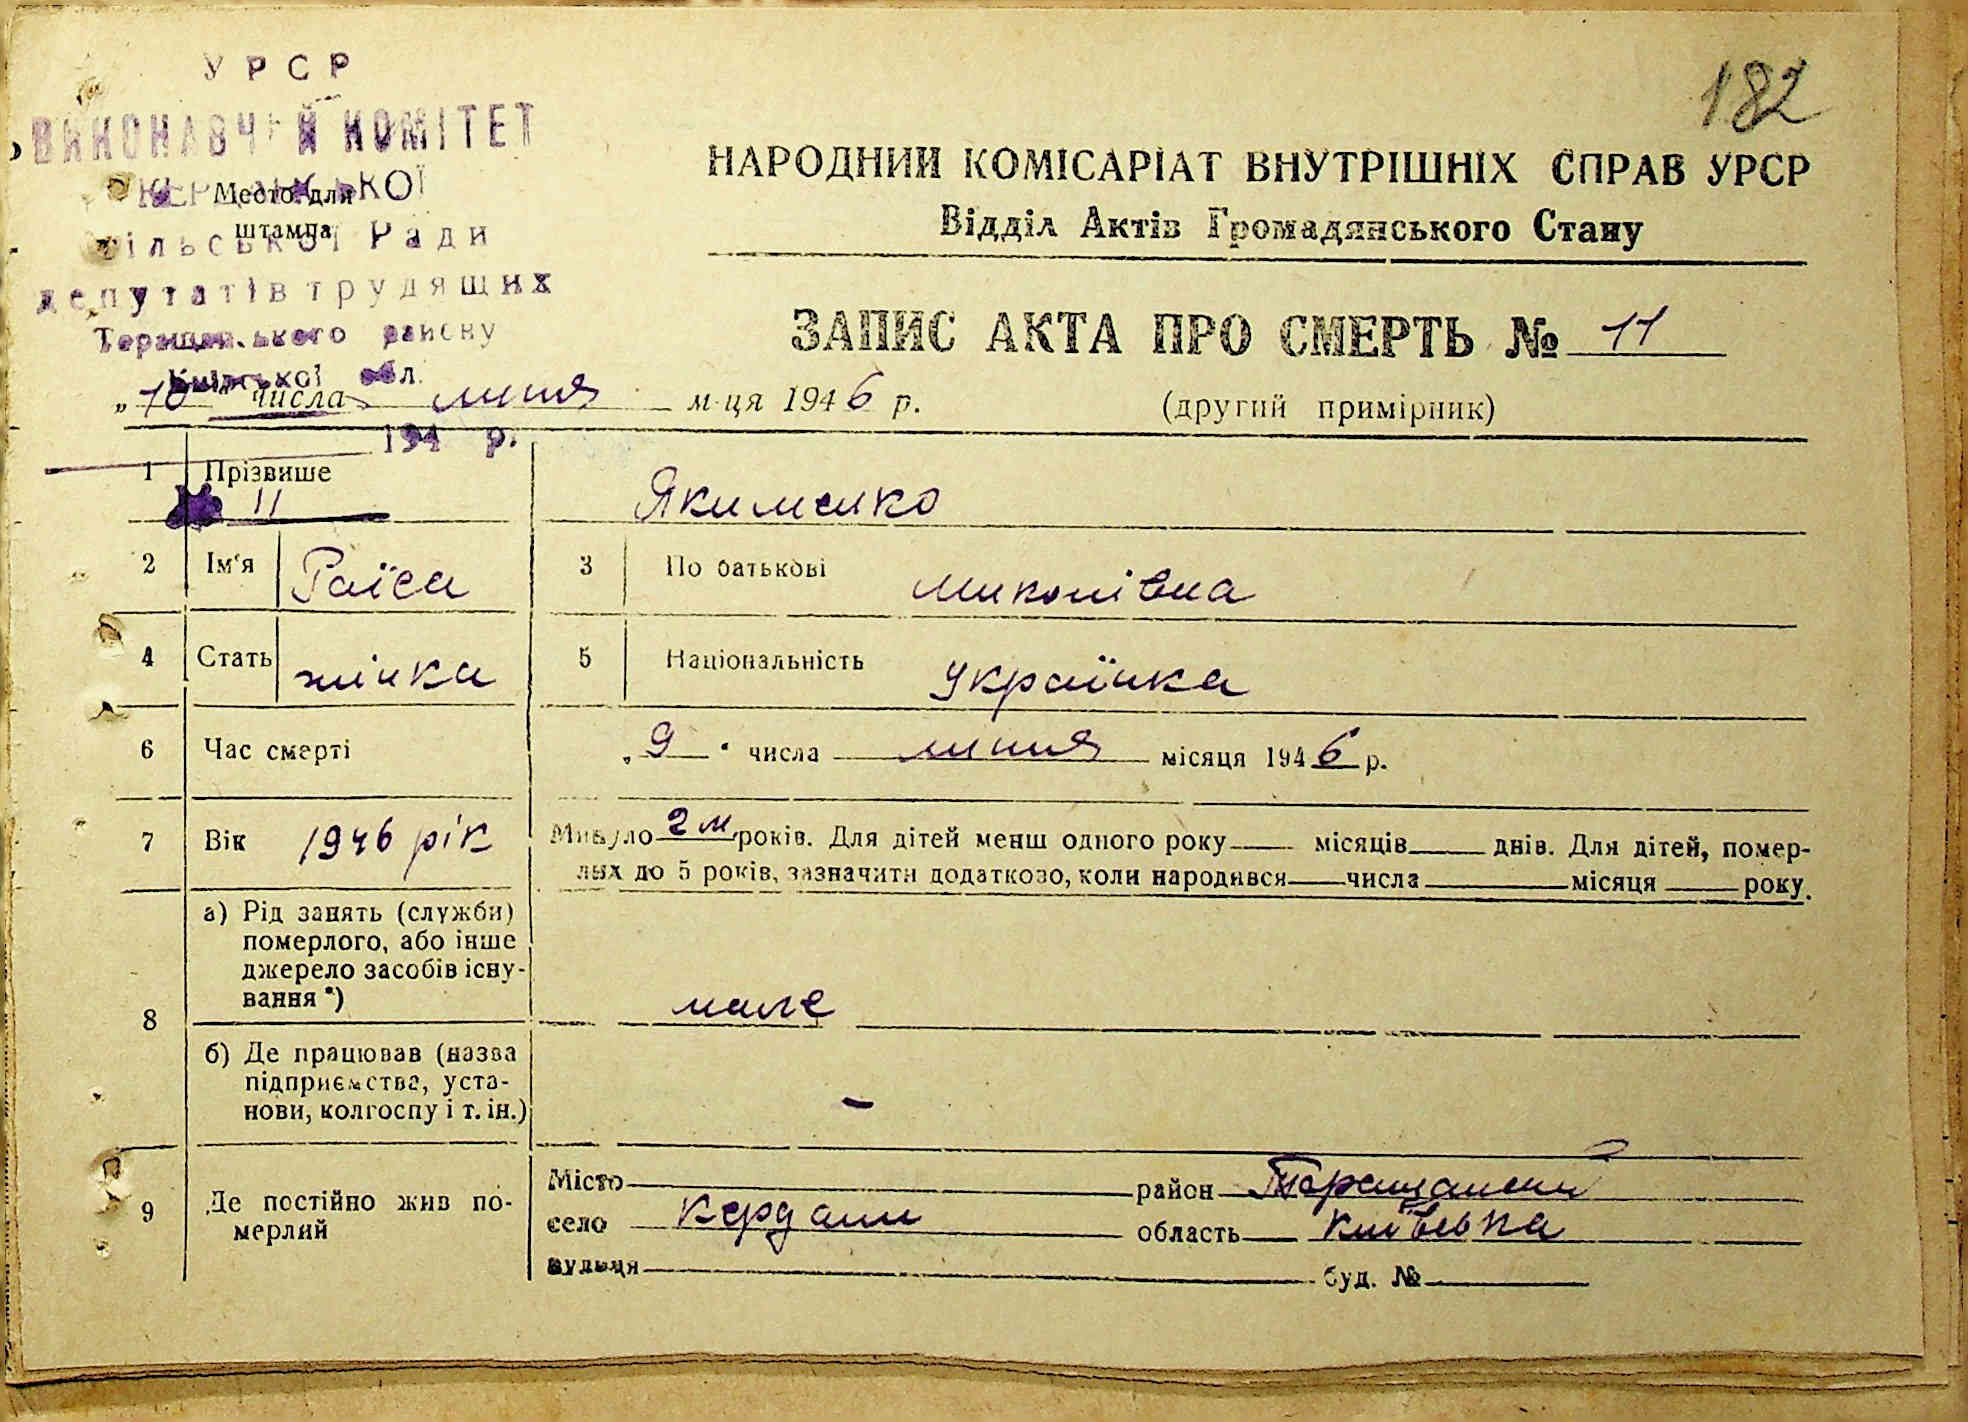 182
УРСР
ВИКОНАВЧИЙ КОМІТЕТ
КЕРДАНСЬКОЇ
Место для
штампа
сільської Ради
депутатів трудящих
Таращанського району
Київської обл.
194 р.
11
НАРОДНИЙ КОМІСАРІАТ ВНУТРІШНІХ СПРАВ УРСР
Відділ Актів Громадянського Стану
ЗАПИС АКТА ПРО СМЕРТЬ № 11
„10" числа липня м-ця 1946 р. (другий примірник)
1 Прізвише Якименко
2 Ім'я Раїса 3 По батькові Миколівна
4 Стать жінка 5 Національність Українка
6 Час смерті „9" числа липня місяця 1946 р.
7 Вік 1946 рік Минуло 2 м років. Для дітей менш одного року місяців днів. Для дітей, помер-
лых до 5 років, зазначити додатково, коли народився числа місяця року.
8 а) Рід занять (служби)
померлого, або інше
джерело засобів існу-
вання *) мале
б) Де працював (назва
підприємства, уста-
нови, колгоспу і т. ін.) -
9 Де постійно жив по-
мерлий
Місто район Таращанский
село Кердани область Київська
вулиця буд. №